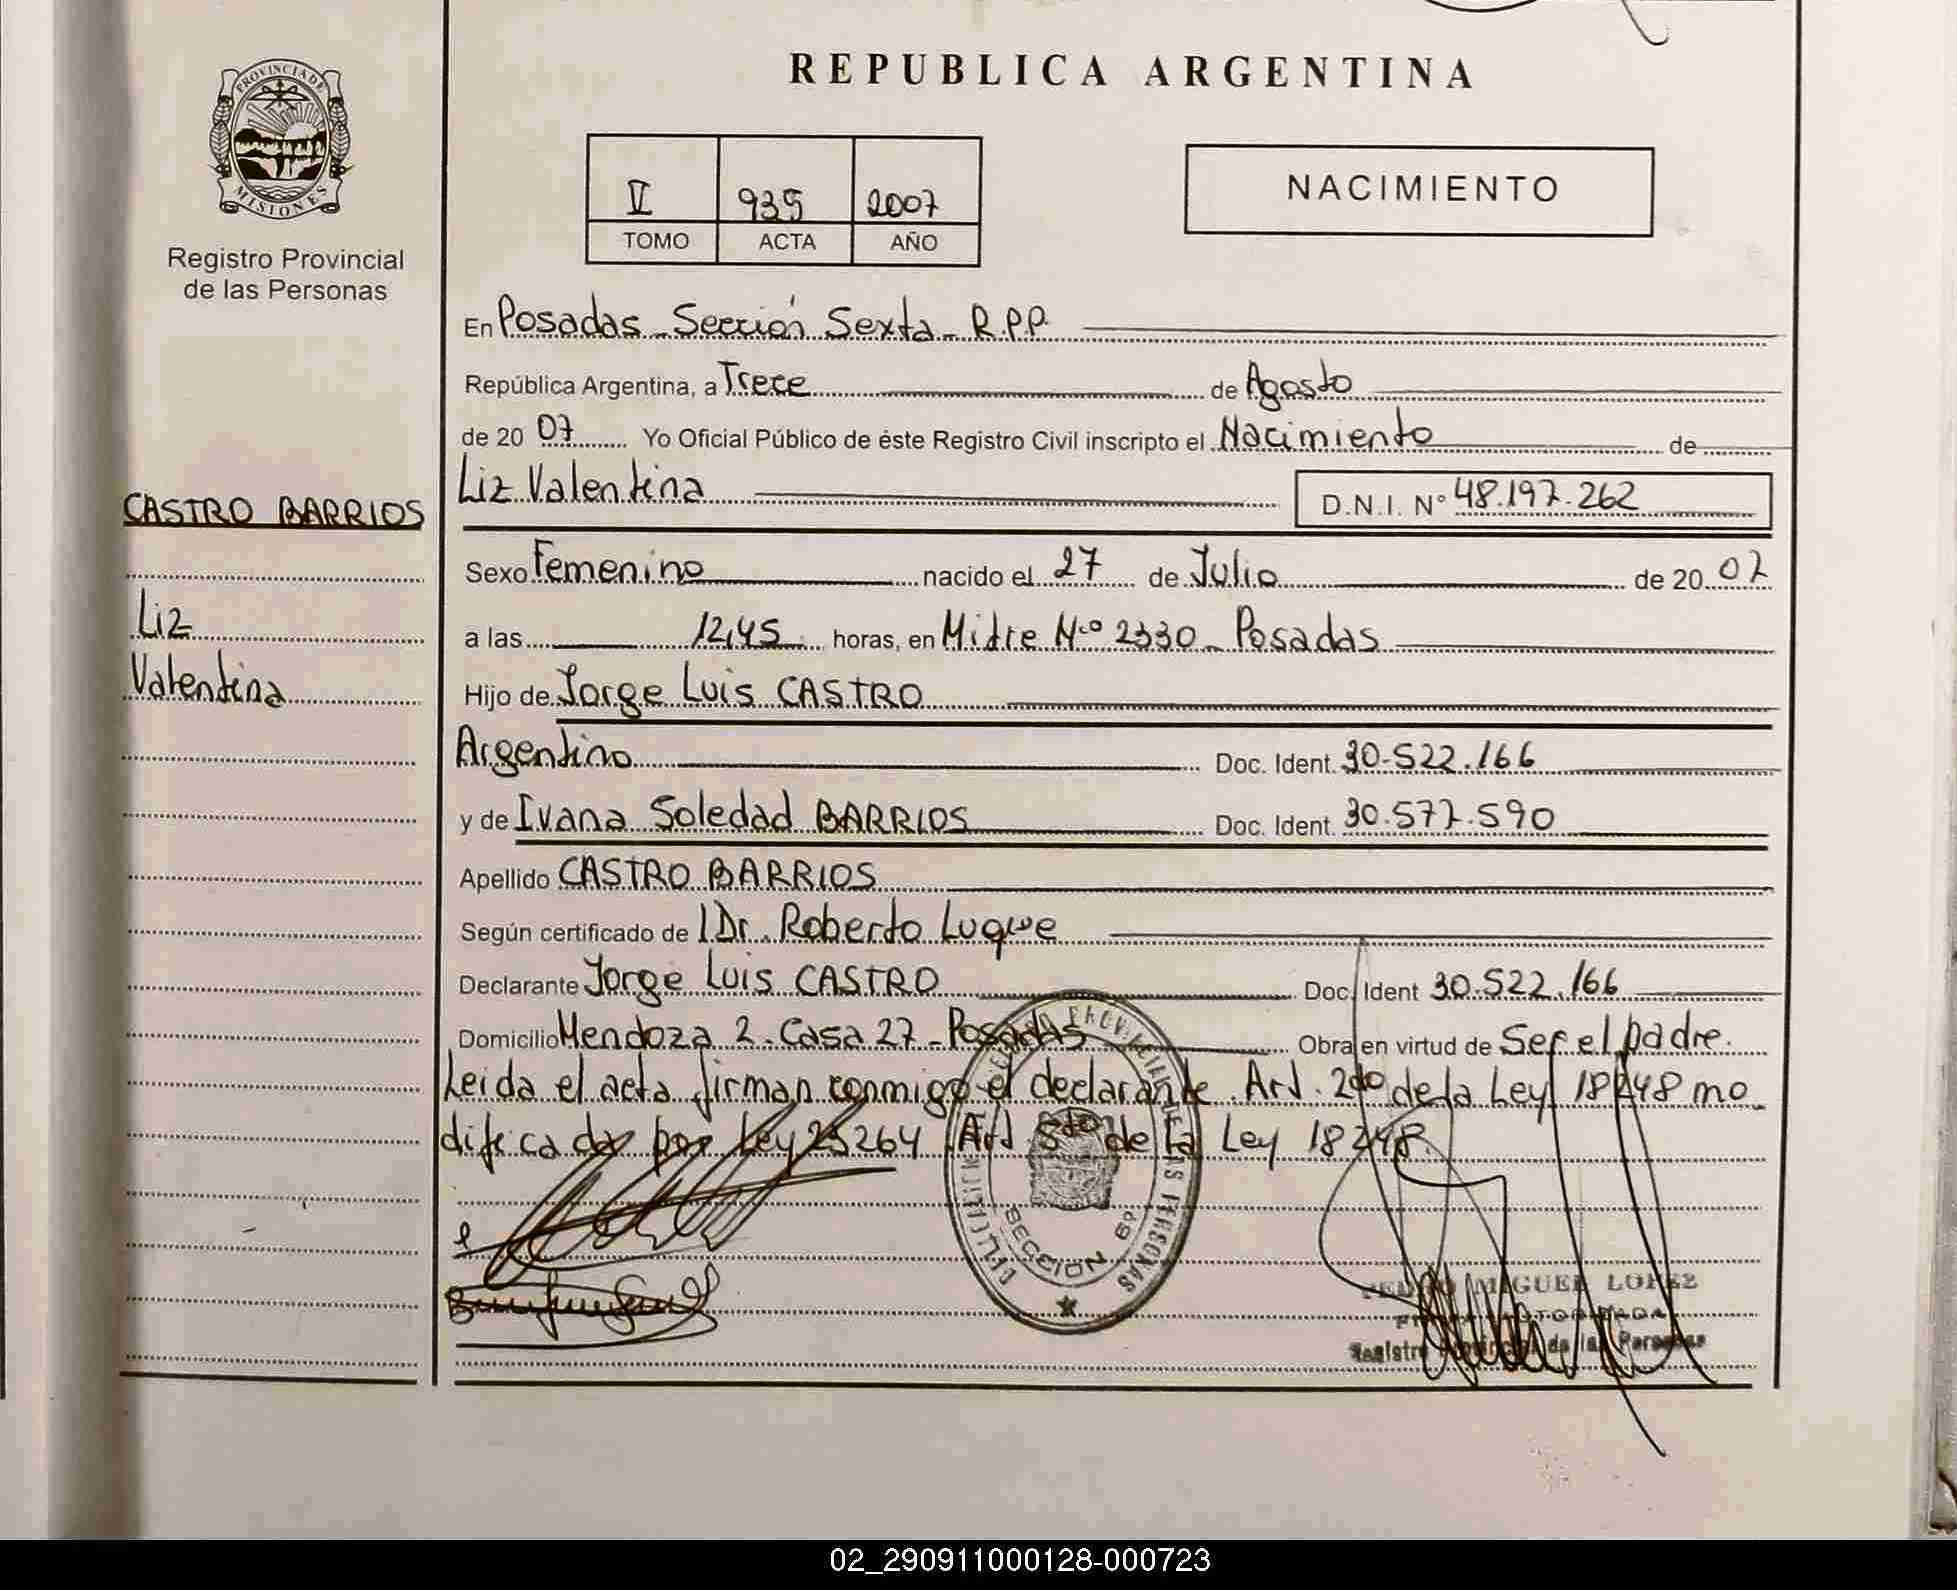 PROVINCIA DE
MISIONES
Registro Provincial
de las Personas
CASTRO BARRIOS
Liz
Valentina
REPUBLICA ARGENTINA
V 935 2007
TOMO ACTA AÑO
NACIMIENTO
En Posadas - Sección Sexta - R.P.P.
República Argentina, a Trece de Agosto
de 20 07 Yo Oficial Público de éste Registro Civil inscripto el Nacimiento de
Liz Valentina D.N.I. Nº 48.197.262
Sexo Femenino nacido el 27 de Julio de 20 07
a las 12,45 horas, en Mitre Nº 2330 - Posadas
Hijo de Jorge Luis CASTRO
Argentino Doc. Ident. 30.522.166
y de Ivana Soledad BARRIOS Doc. Ident. 30.577.590
Apellido CASTRO BARRIOS
Según certificado de l Dr. Roberto Luque
Declarante Jorge Luis CASTRO Doc. Ident 30.522.166
Domicilio Mendoza 2 - Casa 27 - Posadas Obra en virtud de Ser el padre.
Leida el acta firman conmigo el declarante. Art. 2do de la Ley 18248 mo
difica da por Ley 23264 Art 5to de la Ley 18248.
SECCION 6º
MIGUEL LOPEZ
Registro Provincial de las Personas
02_290911000128-000723